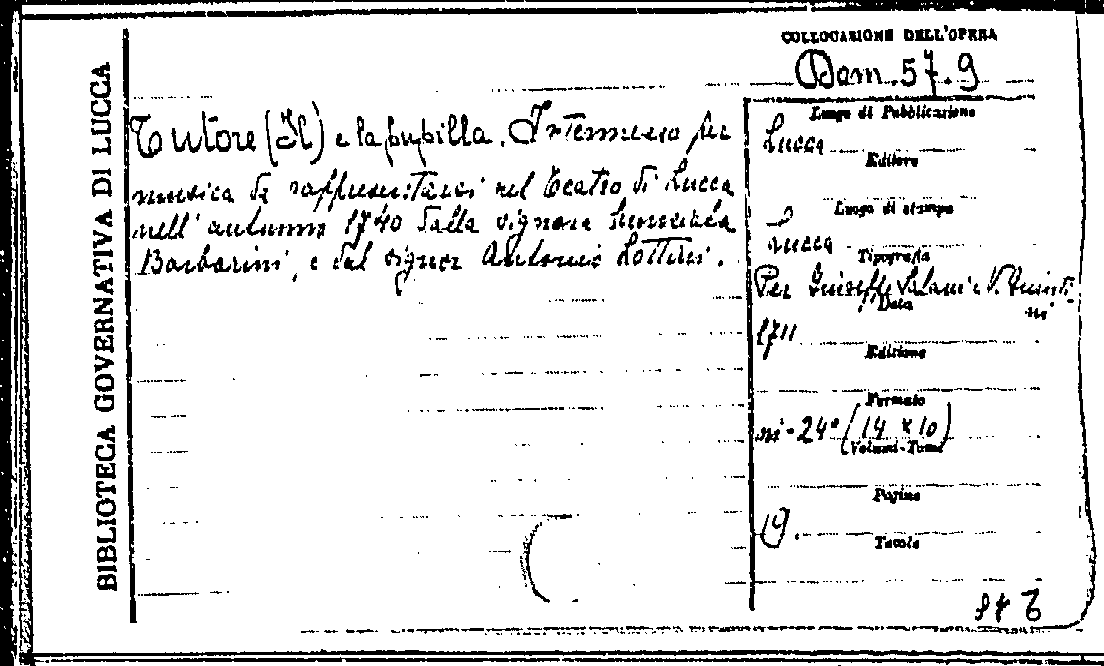 BIBLIOTECA GOVERNATIVA DI LUCCA
COLLOCAZIONE DELL'OPERA
Dom. 57.9
Tutore (Il) e la pupilla. Intermezzo per
musica da rappresentarsi nel Teatro di Lucca
nell' autunno 1740 dalla signora
Barbarini, e dal signor Antonio Lottini.
Luogo di Pubblicazione
Lucca
Editore
Luogo di stampa
Lucca
Tipografia
Per Giuseppe Salani e V. Giunti-
ni
Data
Edizione
Formato
in-24° (14 x 10)
Volumi-Tomi
Pagine
19.
Tavole